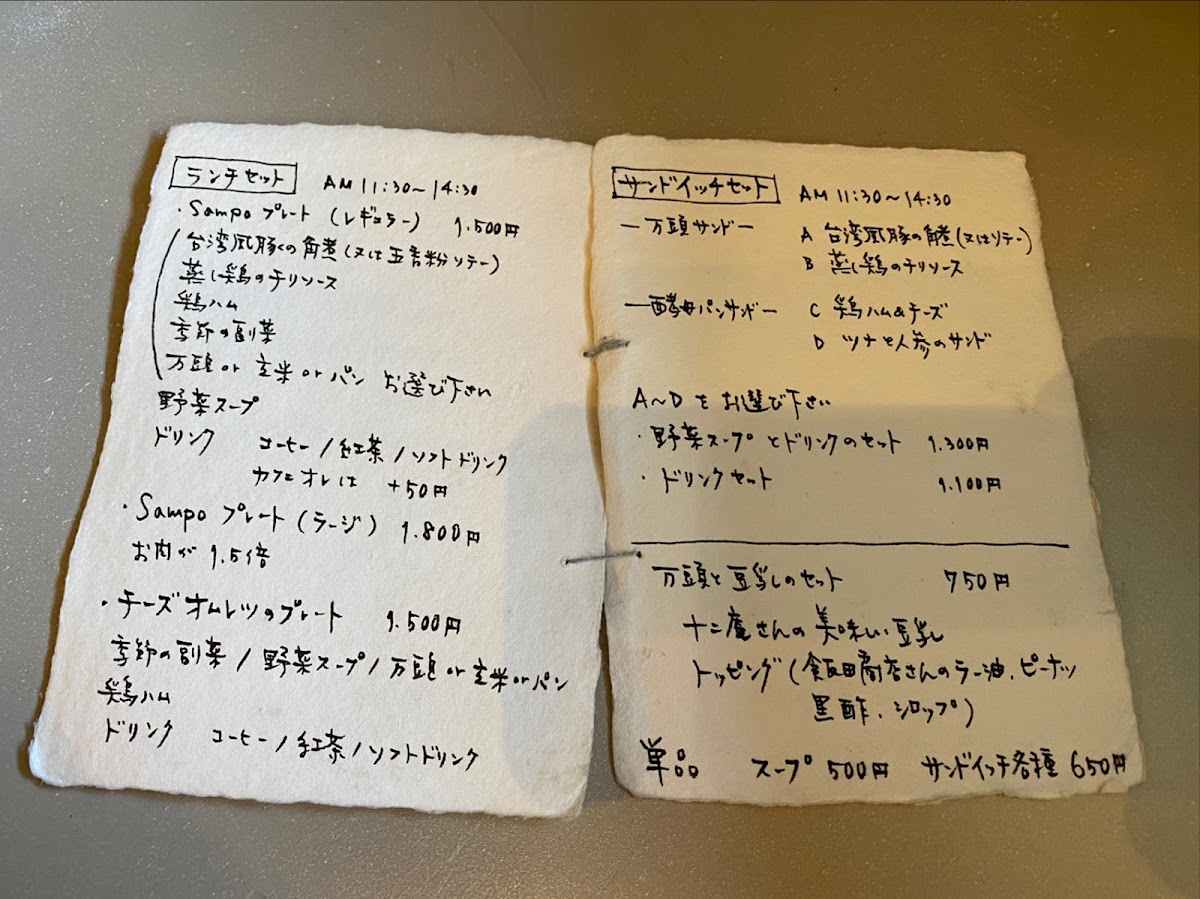 ランチセット AM 11:30〜14:30
・Sampo プレート (レギュラー) 1.500円
台湾風豚の角煮(又は五香粉ソテー)
蒸し鶏のチリソース
鶏ハム
季節の副菜
万頭 or 玄米 or パン お選び下さい
野菜スープ
ドリンク コーヒー / 紅茶 / ソフトドリンク
カフェオレは +50円
・Sampo プレート (ラージ) 1.800円
お肉が 1.5倍
・チーズオムレツのプレート 1.500円
季節の副菜 / 野菜スープ / 万頭 or 玄米 or パン
鶏ハム
ドリンク コーヒー / 紅茶 / ソフトドリンク
サンドイッチセット AM 11:30〜14:30
ー万頭サンドー A 台湾風豚の角煮(又はソテー)
B 蒸し鶏のチリソース
ー酵母パンサンドー C 鶏ハム&チーズ
D ツナと人参のサンド
A〜D をお選び下さい
・野菜スープとドリンクのセット 1.300円
・ドリンクセット 1.100円
万頭と豆乳のセット 750円
十二庵さんの美味しい豆乳
トッピング(飯田商店さんのラー油、ピーナツ
黒酢、シロップ)
単品 スープ 500円 サンドイッチ各種 650円